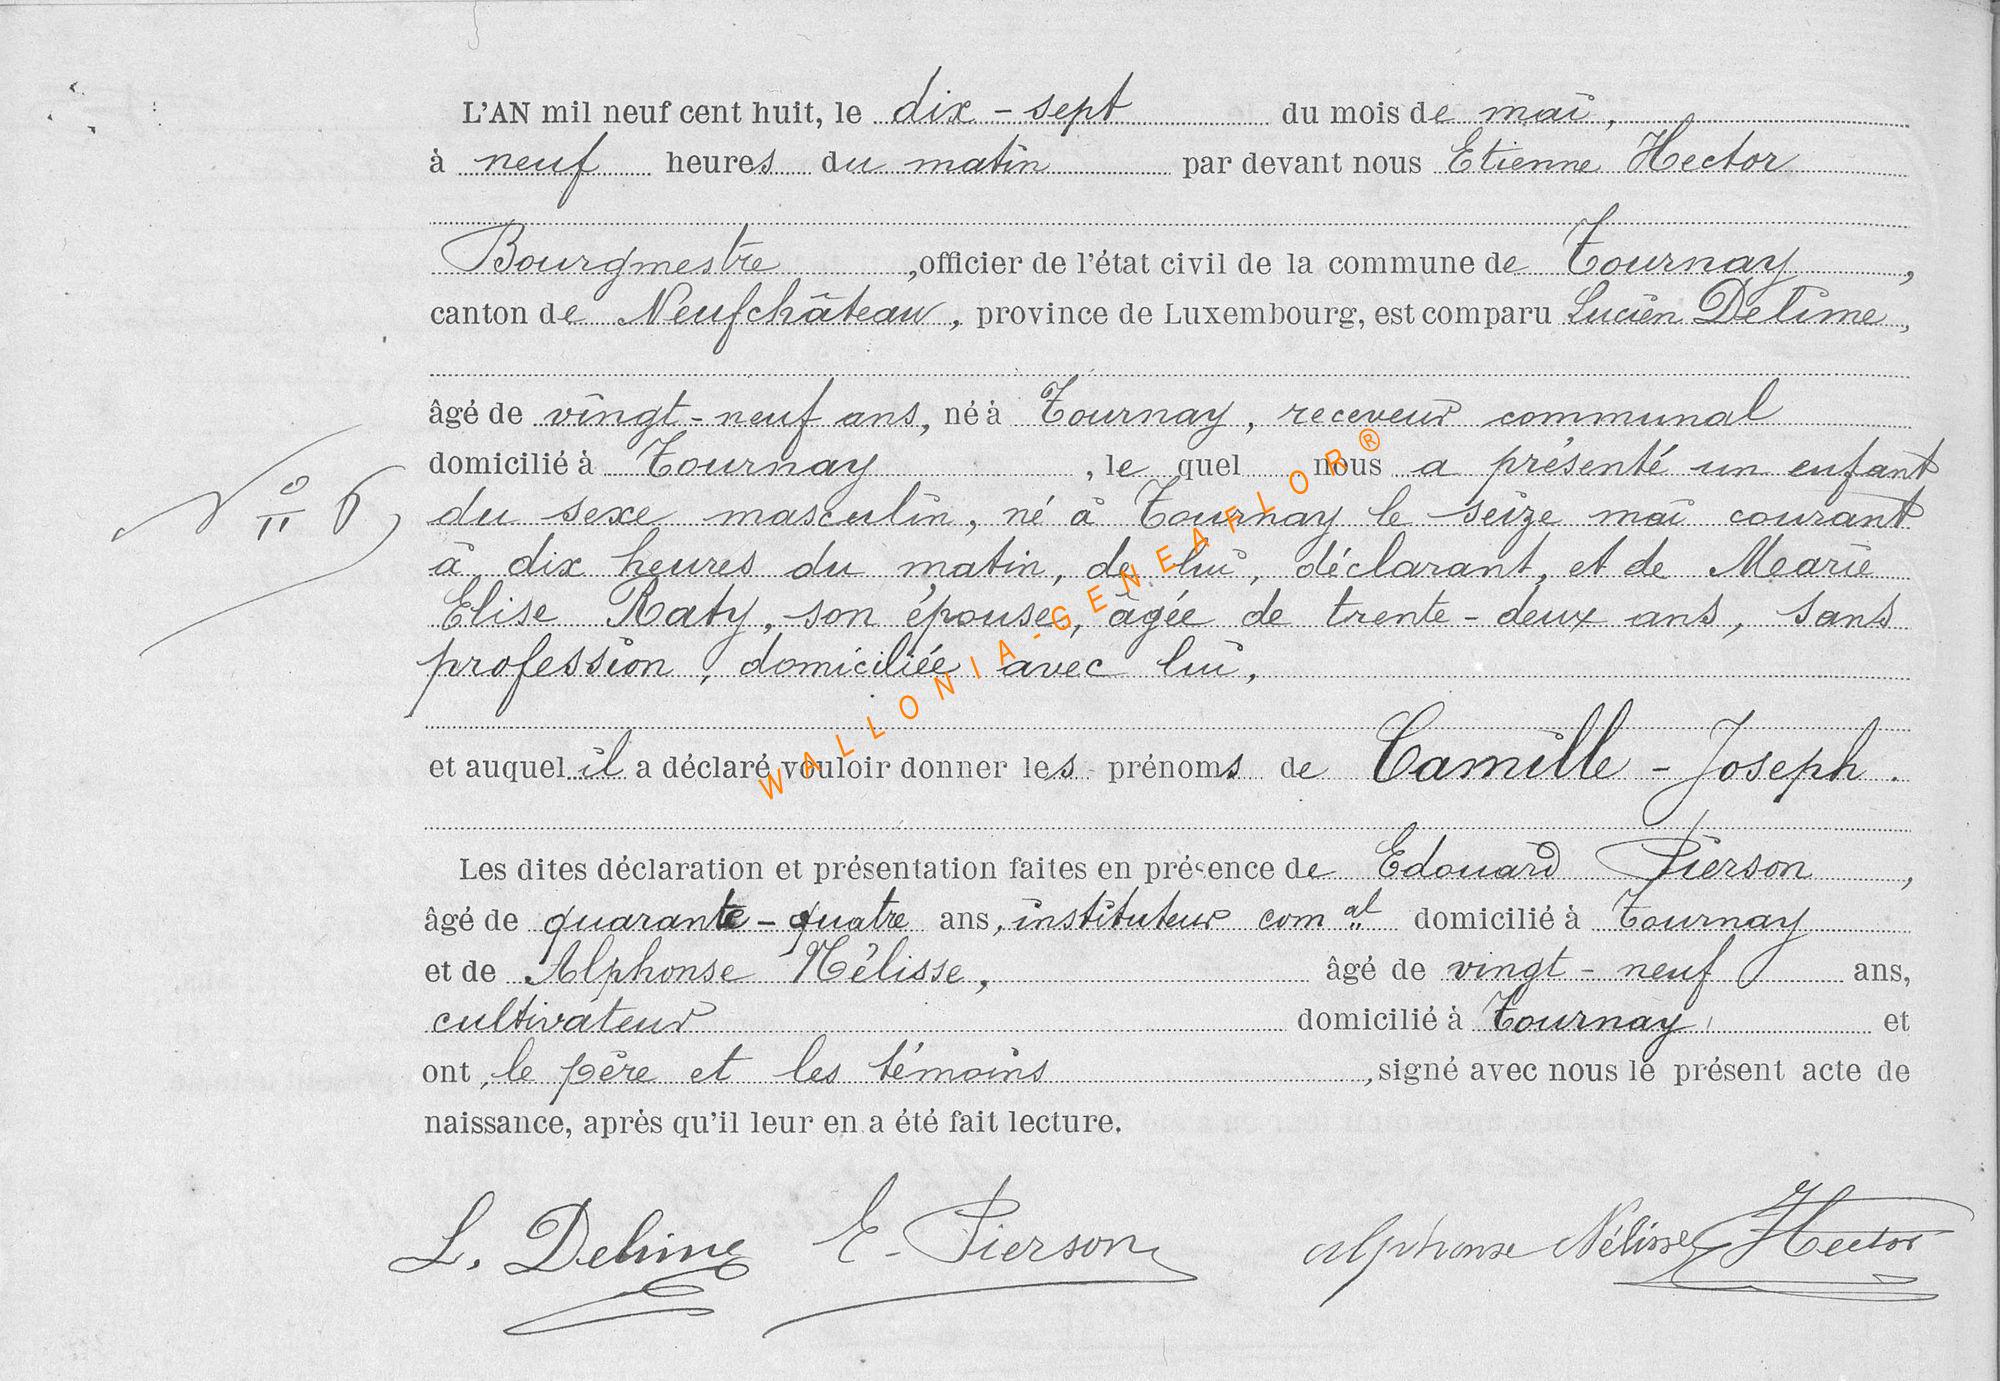 L'AN mil neuf cent huit, le dix-sept du mois de mai,
à neuf heures du matin par devant nous Etienne Hector
Bourgmestre, officier de l'état civil de la commune de Tournay,
canton de Neufchâteau, province de Luxembourg, est comparu Lucien Delime,
âgé de vingt-neuf ans, né à Tournay, receveur communal
domicilié à Tournay, le quel nous a présenté un enfant
N° 6
du sexe masculin, né à Tournay le seize mai courant
à dix heures du matin, de lui, déclarant, et de Marie
Elise Raty, son épouse, âgée de trente-deux ans, sans
profession, domiciliée avec lui,
et auquel il a déclaré vouloir donner les prénoms de Camille-Joseph.
Les dites déclaration et présentation faites en présence de Edouard Pierson,
âgé de quarante-quatre ans, instituteur com.al domicilié à Tournay
et de Alphonse Nélisse, âgé de vingt-neuf ans,
cultivateur domicilié à Tournay, et
ont, le père et les témoins, signé avec nous le présent acte de
naissance, après qu'il leur en a été fait lecture.
L. Delime E. Pierson Alphonse Nélisse Hector
WALLONIA-GENEAFLOR®